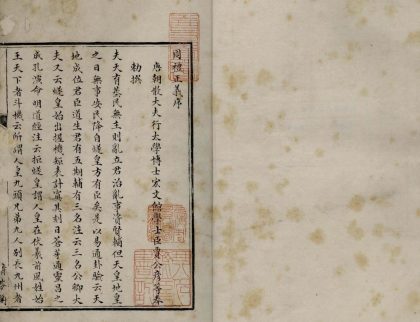 周禮正義序
唐朝散大夫行太學博士宏文館學士臣賈公彦等奉
勅撰
夫天育蒸民無主則亂立君治亂事資賢輔但天皇地皇
之日無事安民降自燧皇方有臣矣是以易通卦驗云天
地成位君臣道生君有五期輔有三名注云三名公卿大
夫又云燧皇始出握機矩表計寘其刻曰蒼牙通靈昌之
成孔演命明道經注云燧皇謂人皇在伏羲前風姓始
王天下者斗機云所謂人皇九頭兄弟九人別長九州者